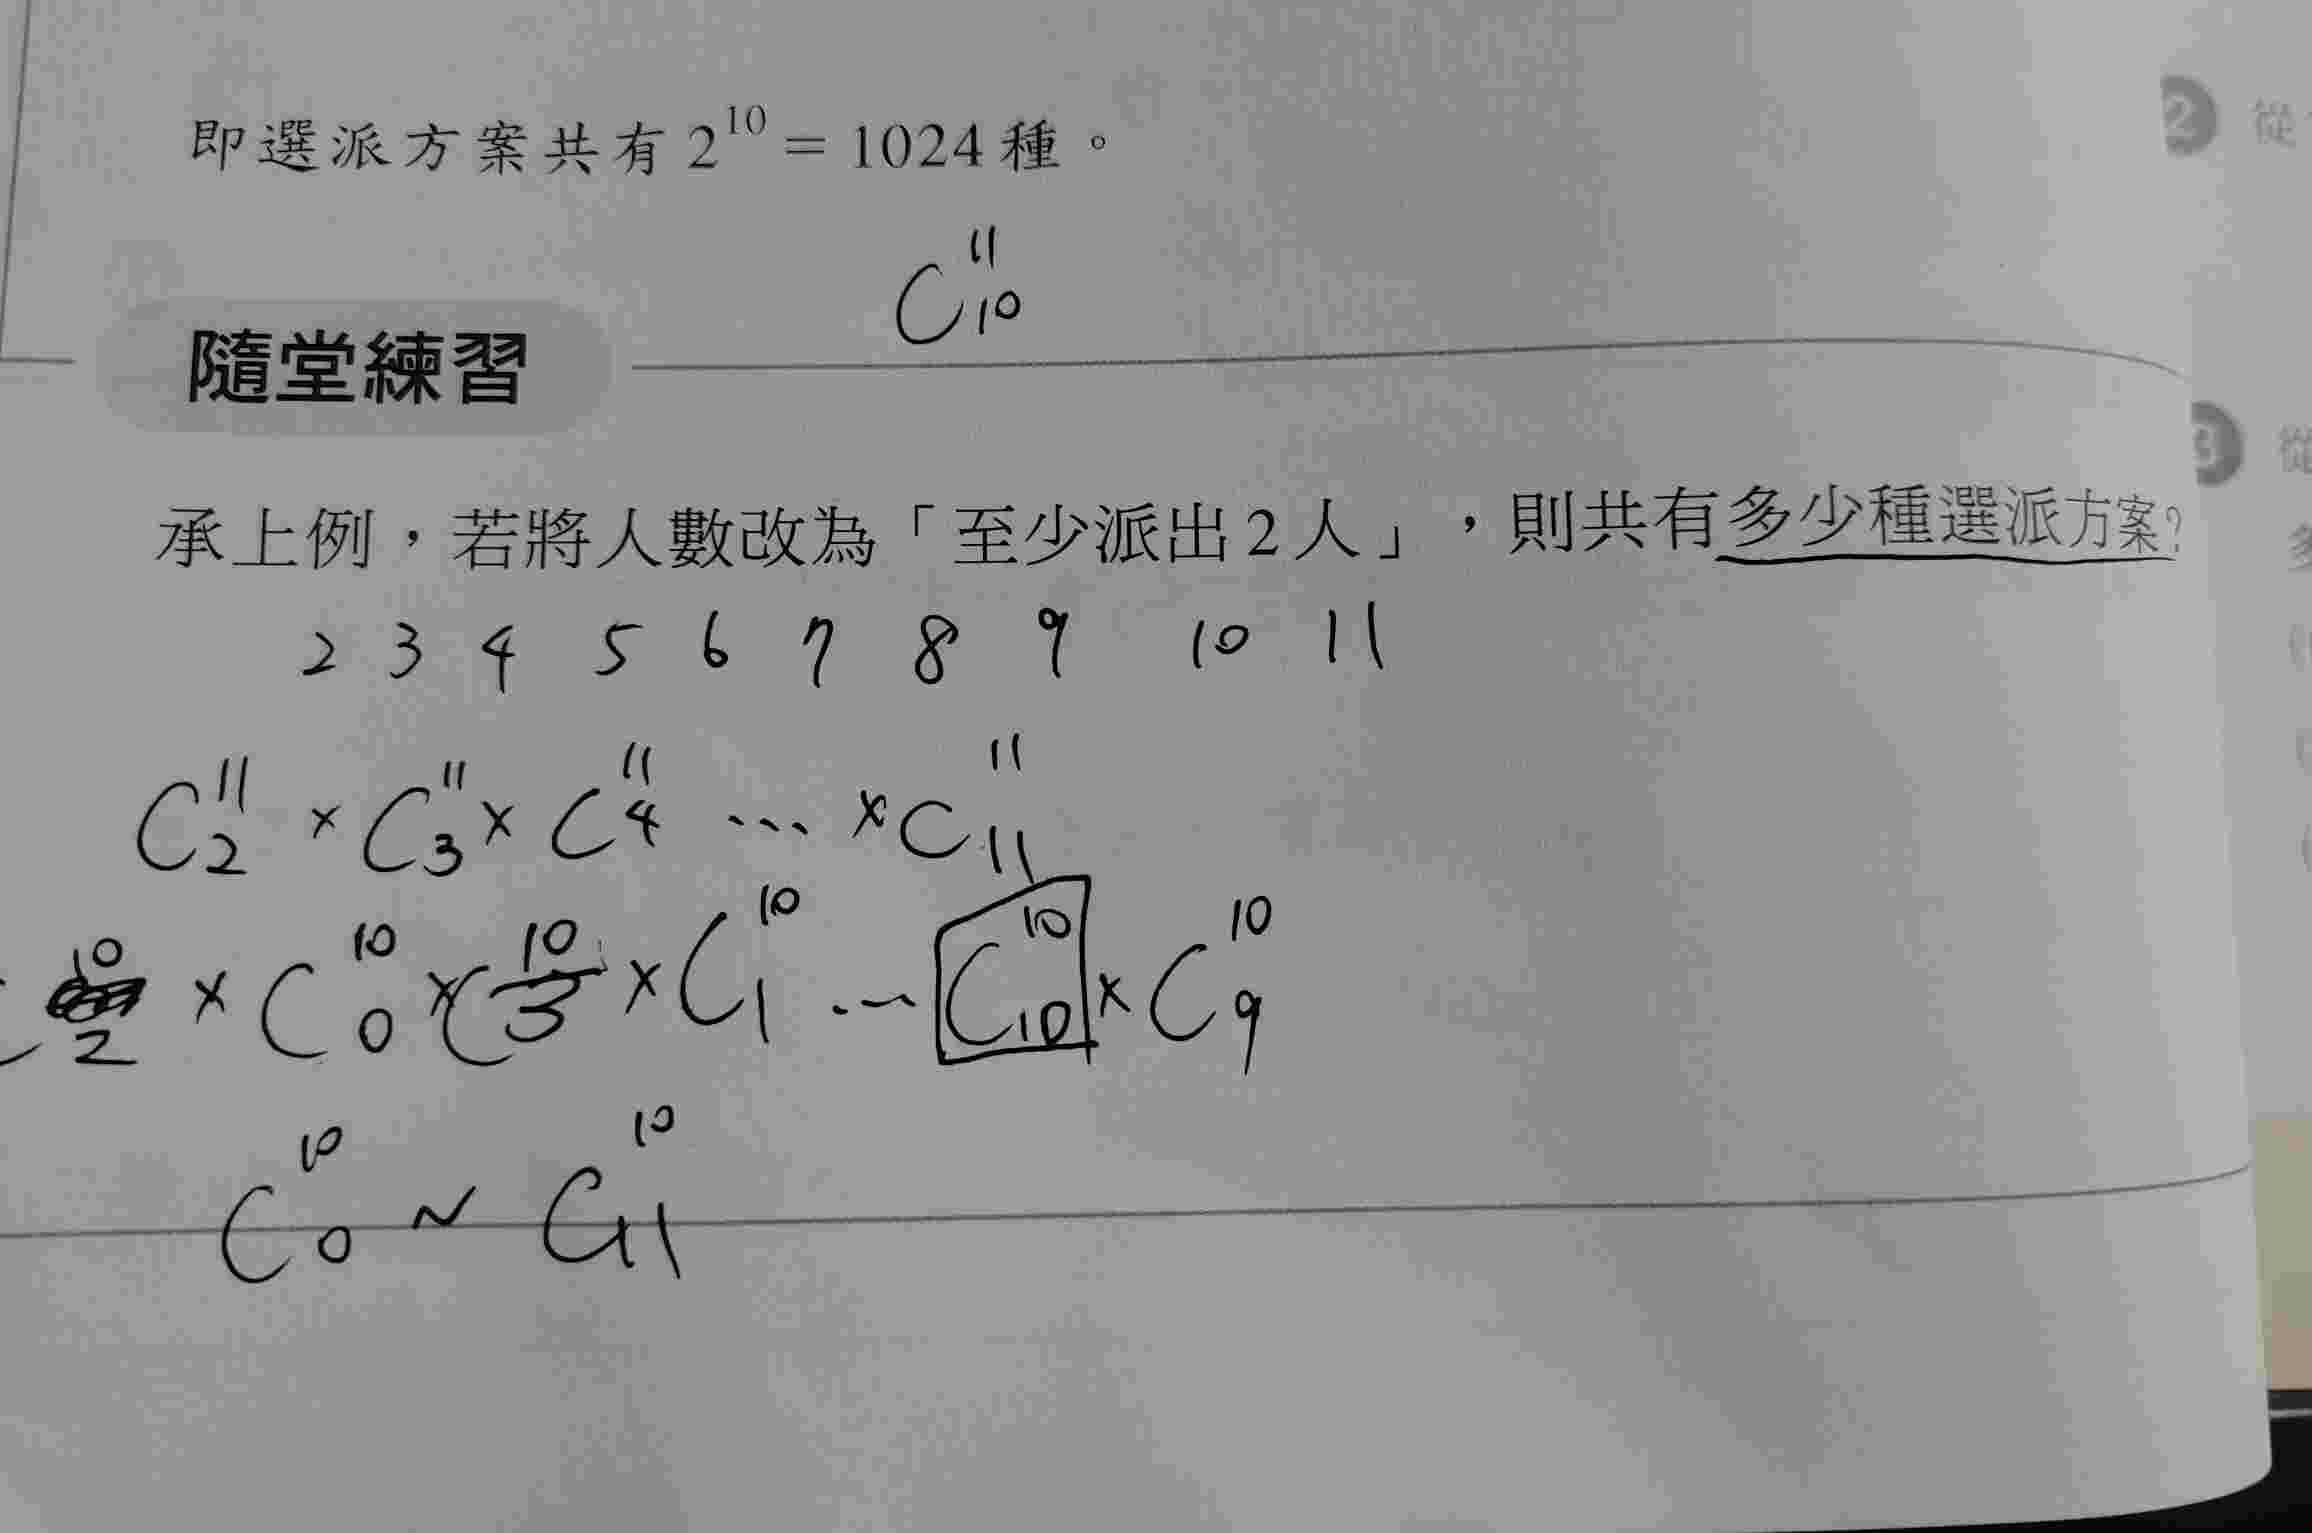 即選派方案共有 2^10 = 1024 種。
C^11_10
隨堂練習
承上例，若將人數改為「至少派出2人」，則共有多少種選派方案？
2 3 4 5 6 7 8 9 10 11
C^11_2 × C^11_3 × C^11_4 ... × C^11_11
10 2 × C^10_0 × C^10_3 × C^10_1 ... C^10_10 × C^10_9
C^10_0 ~ C^10_11
2 從
3 從
多